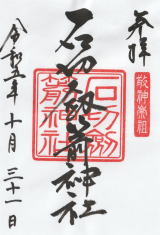 奉拝
敬神崇祖
石切劔箭神社
石切劔箭神社
令和五年十月三十一日